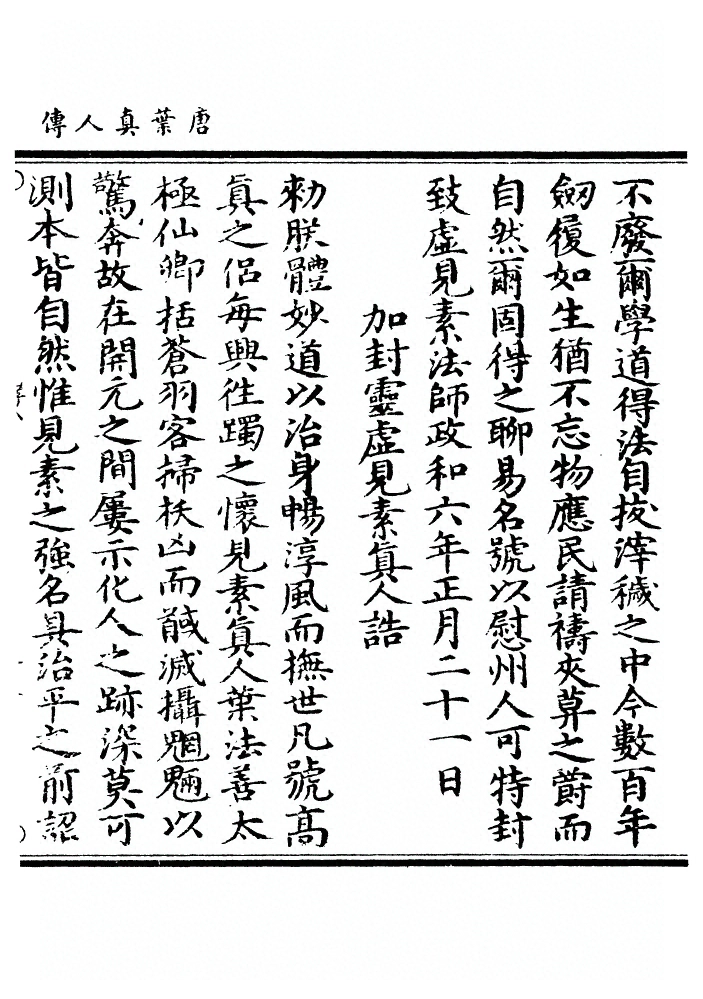 唐葉真人傳
不廢爾學道得法自拔滓穢之中今數百年
劒履如生猶不忘物應民請禱夾算之爵而
自然爾固得之聊易名號以慰州人可特封
致虛見素法師政和六年正月二十一日
加封靈虛見素真人誥
勑朕體妙道以治身暢淳風而撫世凡號高
真之侶每興徃躅之懷見素真人葉法善太
極仙卿括蒼羽客掃祅凶而馘滅攝魍魎以
驚奔故在開元之間屢示化人之跡深莫可
測本皆自然惟見素之強名具治平之前詔